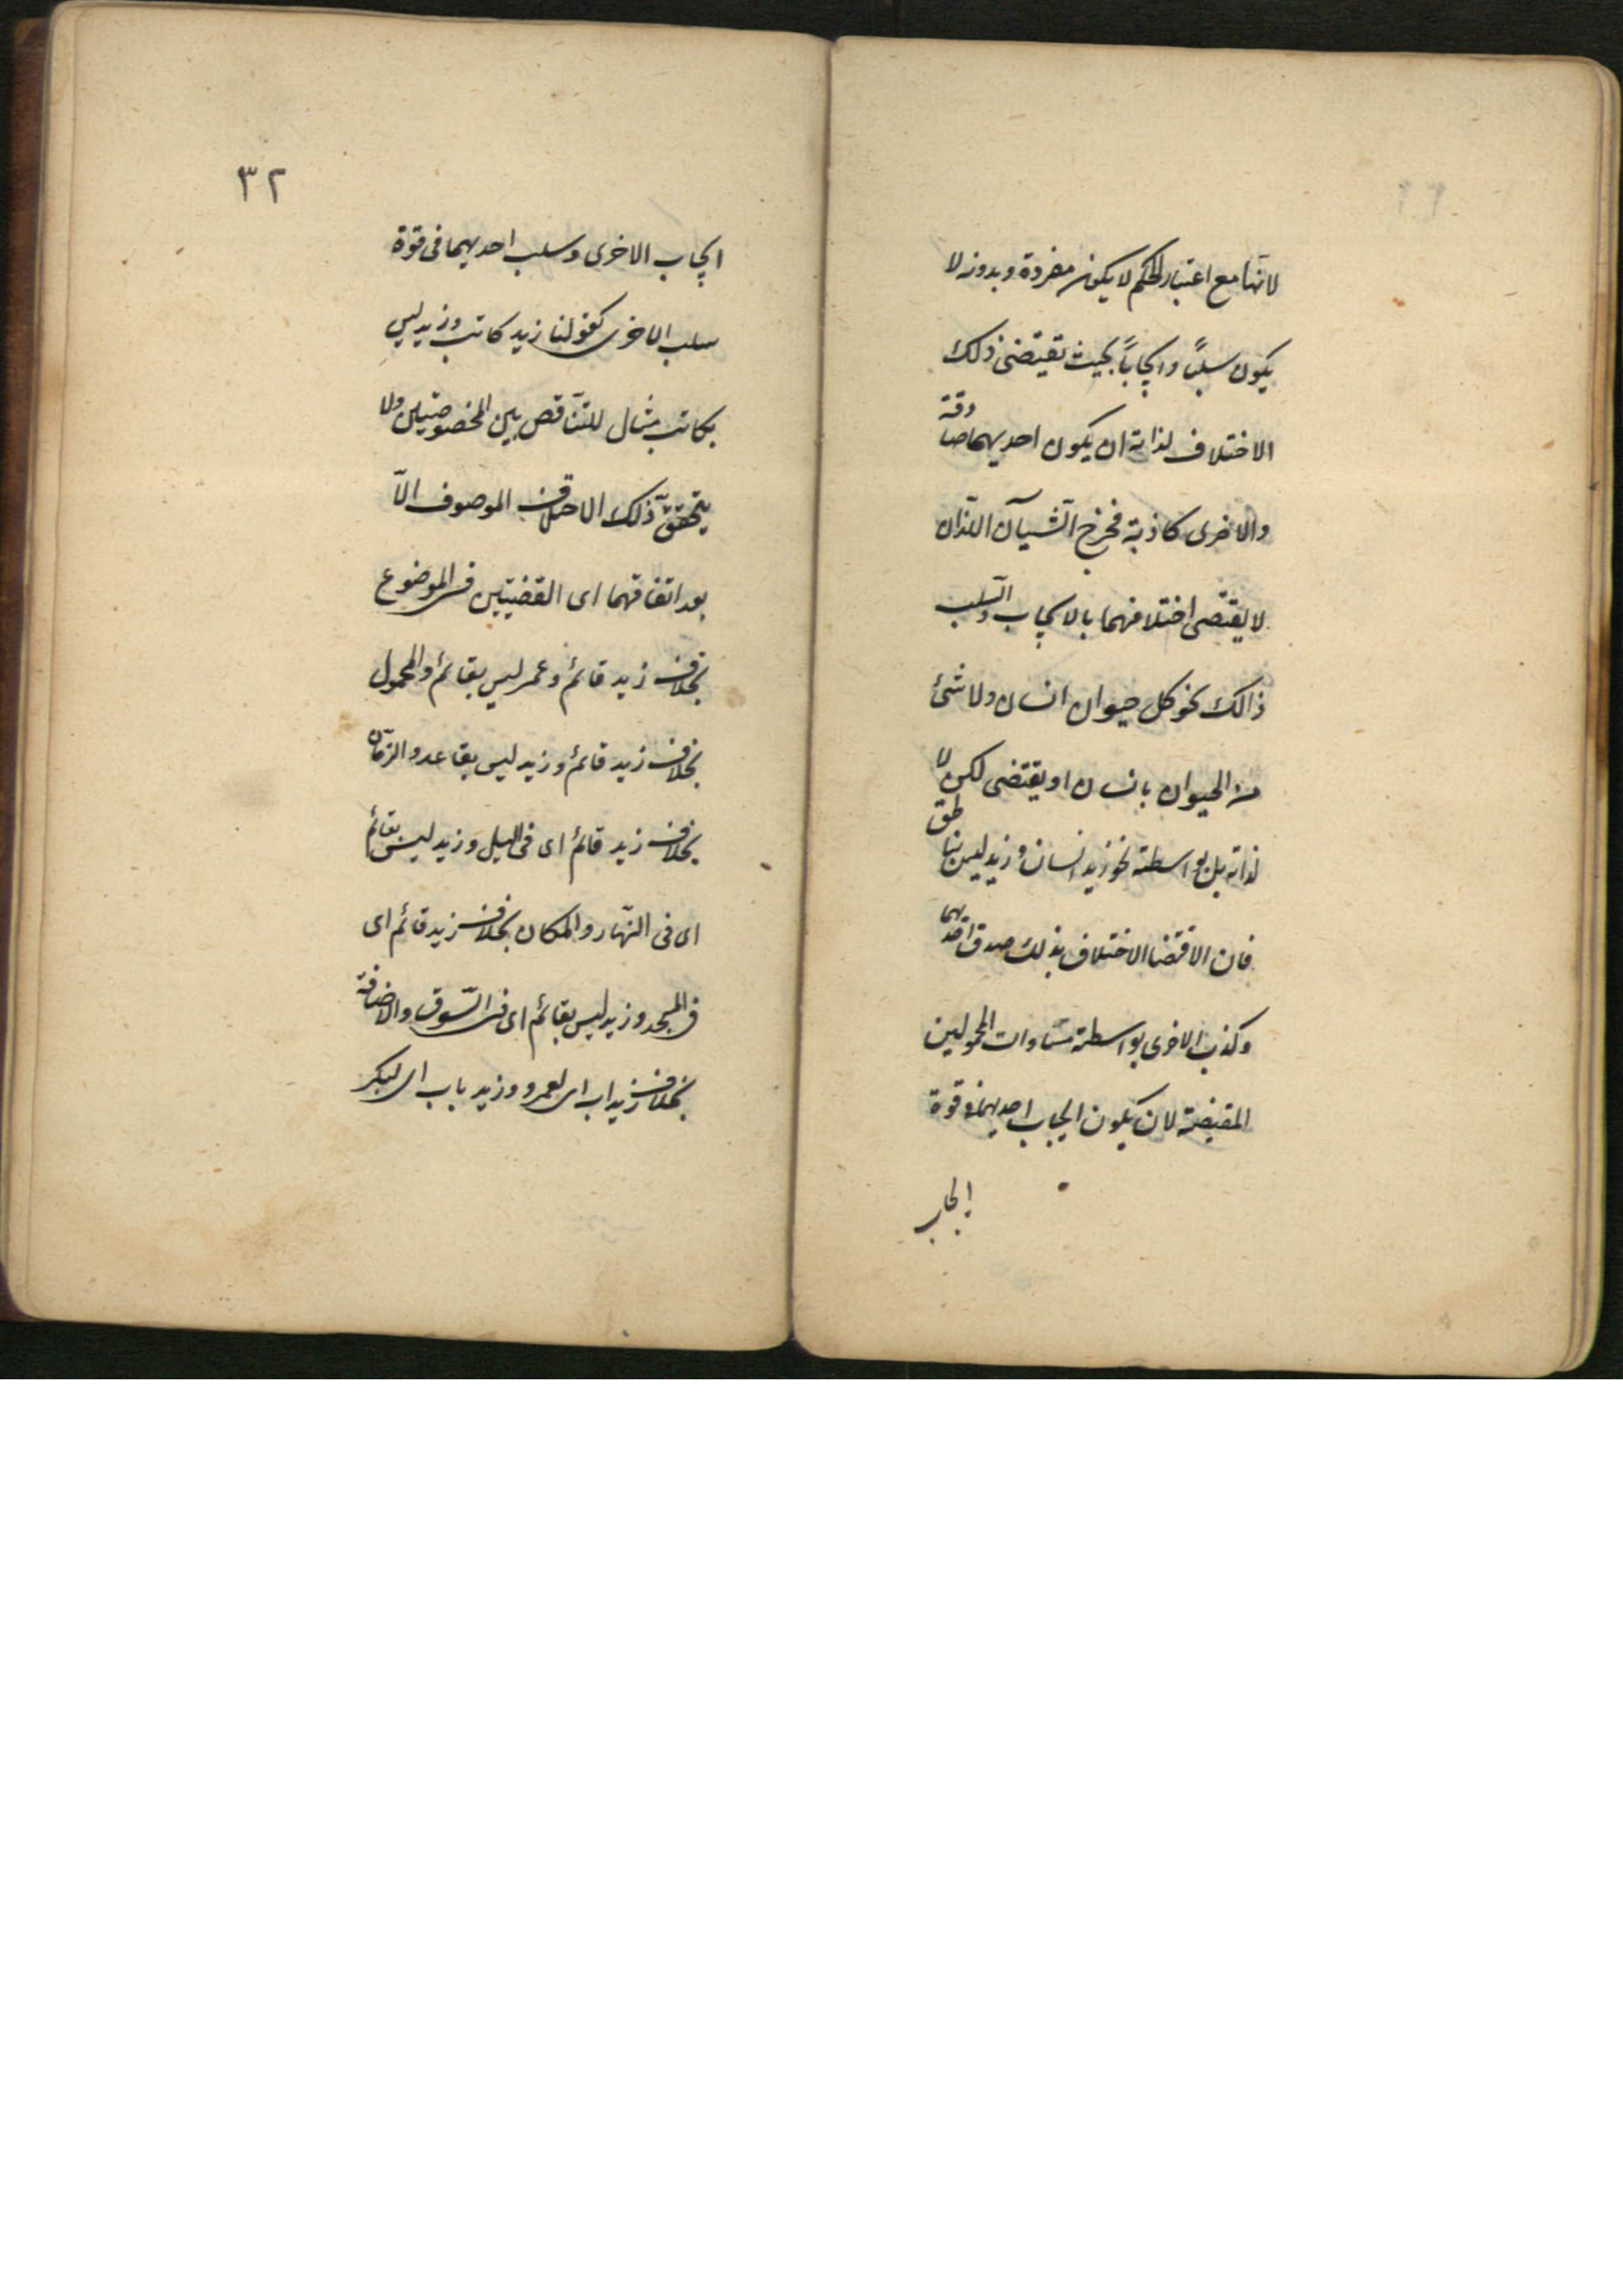 لانها مع اعتبار الحكم لا يكون مفردة وبدونه لا
يكون سلبًا وايجابًا بحيث تقيتضى ذلك
الاختلاف لذاته ان يكون احديهما صادقة
والاخرى كاذبة فخرج الشيآن اللذان
لا يقتضى اختلافهما بالايجاب والسلب
ذالك نحو كل حيوان انسان ولا شئ
من الحيوان بانسان او يقتضى لكن لا
لذاته بل بواسطة نحو زيد انسان وزيد ليس بناطق
فان الاقتضا الاختلاف بذلك صدق احديهما
وكذب الاخرى بواسطة مساوات المحمولين
المقيضة لان يكون ايجاب احديهما فى قوة
ايجاب
٣٢
ايجاب الاخرى وسلب احديهما فى قوة
سلب الاخرى كقولنا زيد كاتب وزيد ليس
بكاتب مثال للتناقص بين المخصوصتين ولا
يتحقق ذلك الاختلاف الموصوف الاّ
بعد اتفاقهما اى القضيتين فى الموضوع
بخلاف زيد قائم وعمر ليس بقائم والمحمول
بخلاف زيد قائم وزيد ليس بقاعد والزمان
بخلاف زيد قائم اى فى الليل وزيد ليس بقائم
اى فى النهّار والمكان بخلاف زيد قائم اى
فى المسجد وزيد ليس بقائم اى فى السّوق والاضافة
بخلاف زيد اب اى لعمرو وزيد باب اى لبكر